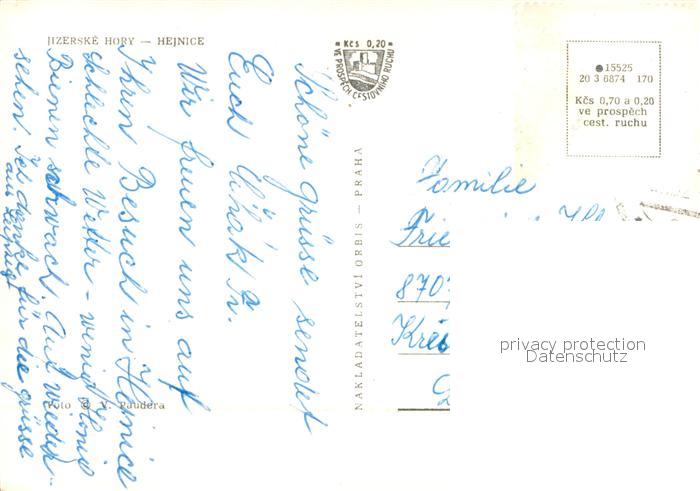 JIZERSKÉ HORY — HEJNICE
Schöne Grüsse sendet
Euch
Wir freuen uns auf
Ihren Besuch in Hejnice
schlechte Wetter - wenig Honig
Bienen schwach. Auf wieder-
sehen. Ich danke für die grüsse
aus Leipzig
Foto © V. Paudera
Kčs 0,20
VE PROSPĚCH CESTOVNÍHO RUCHU
NAKLADATELSTVÍ ORBIS — PRAHA
15525
20 3 6874 170
Kčs 0,70 a 0,20
ve prospěch
cest. ruchu
Familie
Frie
870
Kreis
privacy protection
Datenschutz